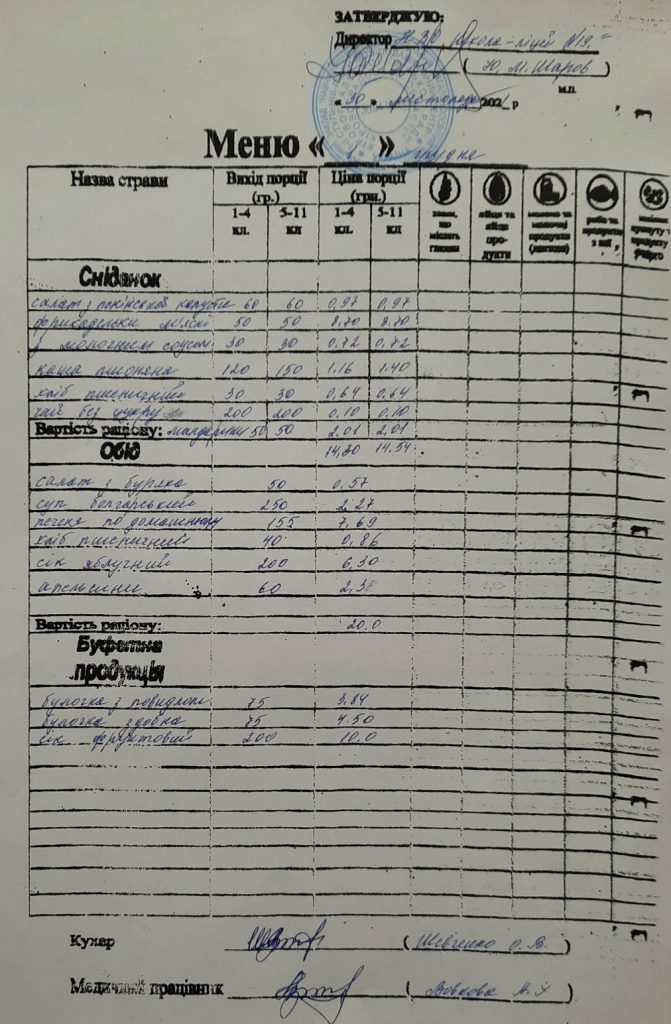 ЗАТВЕРДЖУЮ:
Директор НЗО "Школа-ліцей №19"
( Ю. М. Шаров )
м.п.
« 30 » листопада 202_ р
Меню « 1 » грудня
Назва страви Вихід порції (гр.) Ціна порції (грн.)
1-4 кл. 5-11 кл 1-4 кл. 5-11 кл
злаки, що містять глютен
яйця та яйце продукти
молоко та молочні продукти (лактоза)
риба та продукти з неї
Сніданок
салат з пекінської капусти 60 60 0,97 0,97
фрикадельки м'ясні 50 50 8.70 8.70
з молочним соусом 30 30 0,72 0,72
каша пшоняна 120 150 1.16 1.40
хліб пшеничний 30 30 0,64 0,64
чай без цукру 200 200 0,10 0,10
Вартість раціону: мандарини 50 50 2.01 2,01
Обід 14,30 14.54
салат з буряка 50 0,57
суп болгарський 250 2,27
печеня по домашньому 155 7,69
хліб пшеничний 40 0,86
сік яблучний 200 6,30
апельсини 60 2,3
Вартість раціону: 20,0
Буфетна
продукція
булочка з повидлом 75 3,84
булочка здобна 75 4.50
сік фруктовий 200 10,0
Кухар ( Шевченко О. В. )
Медичний працівник ( Вовкова )